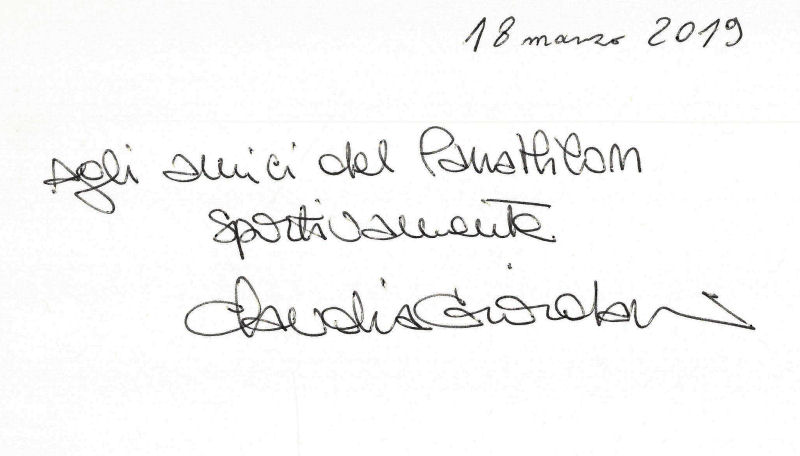 18 marzo 2019
agli amici del Panathlon
sportivamente
Claudia Giordani